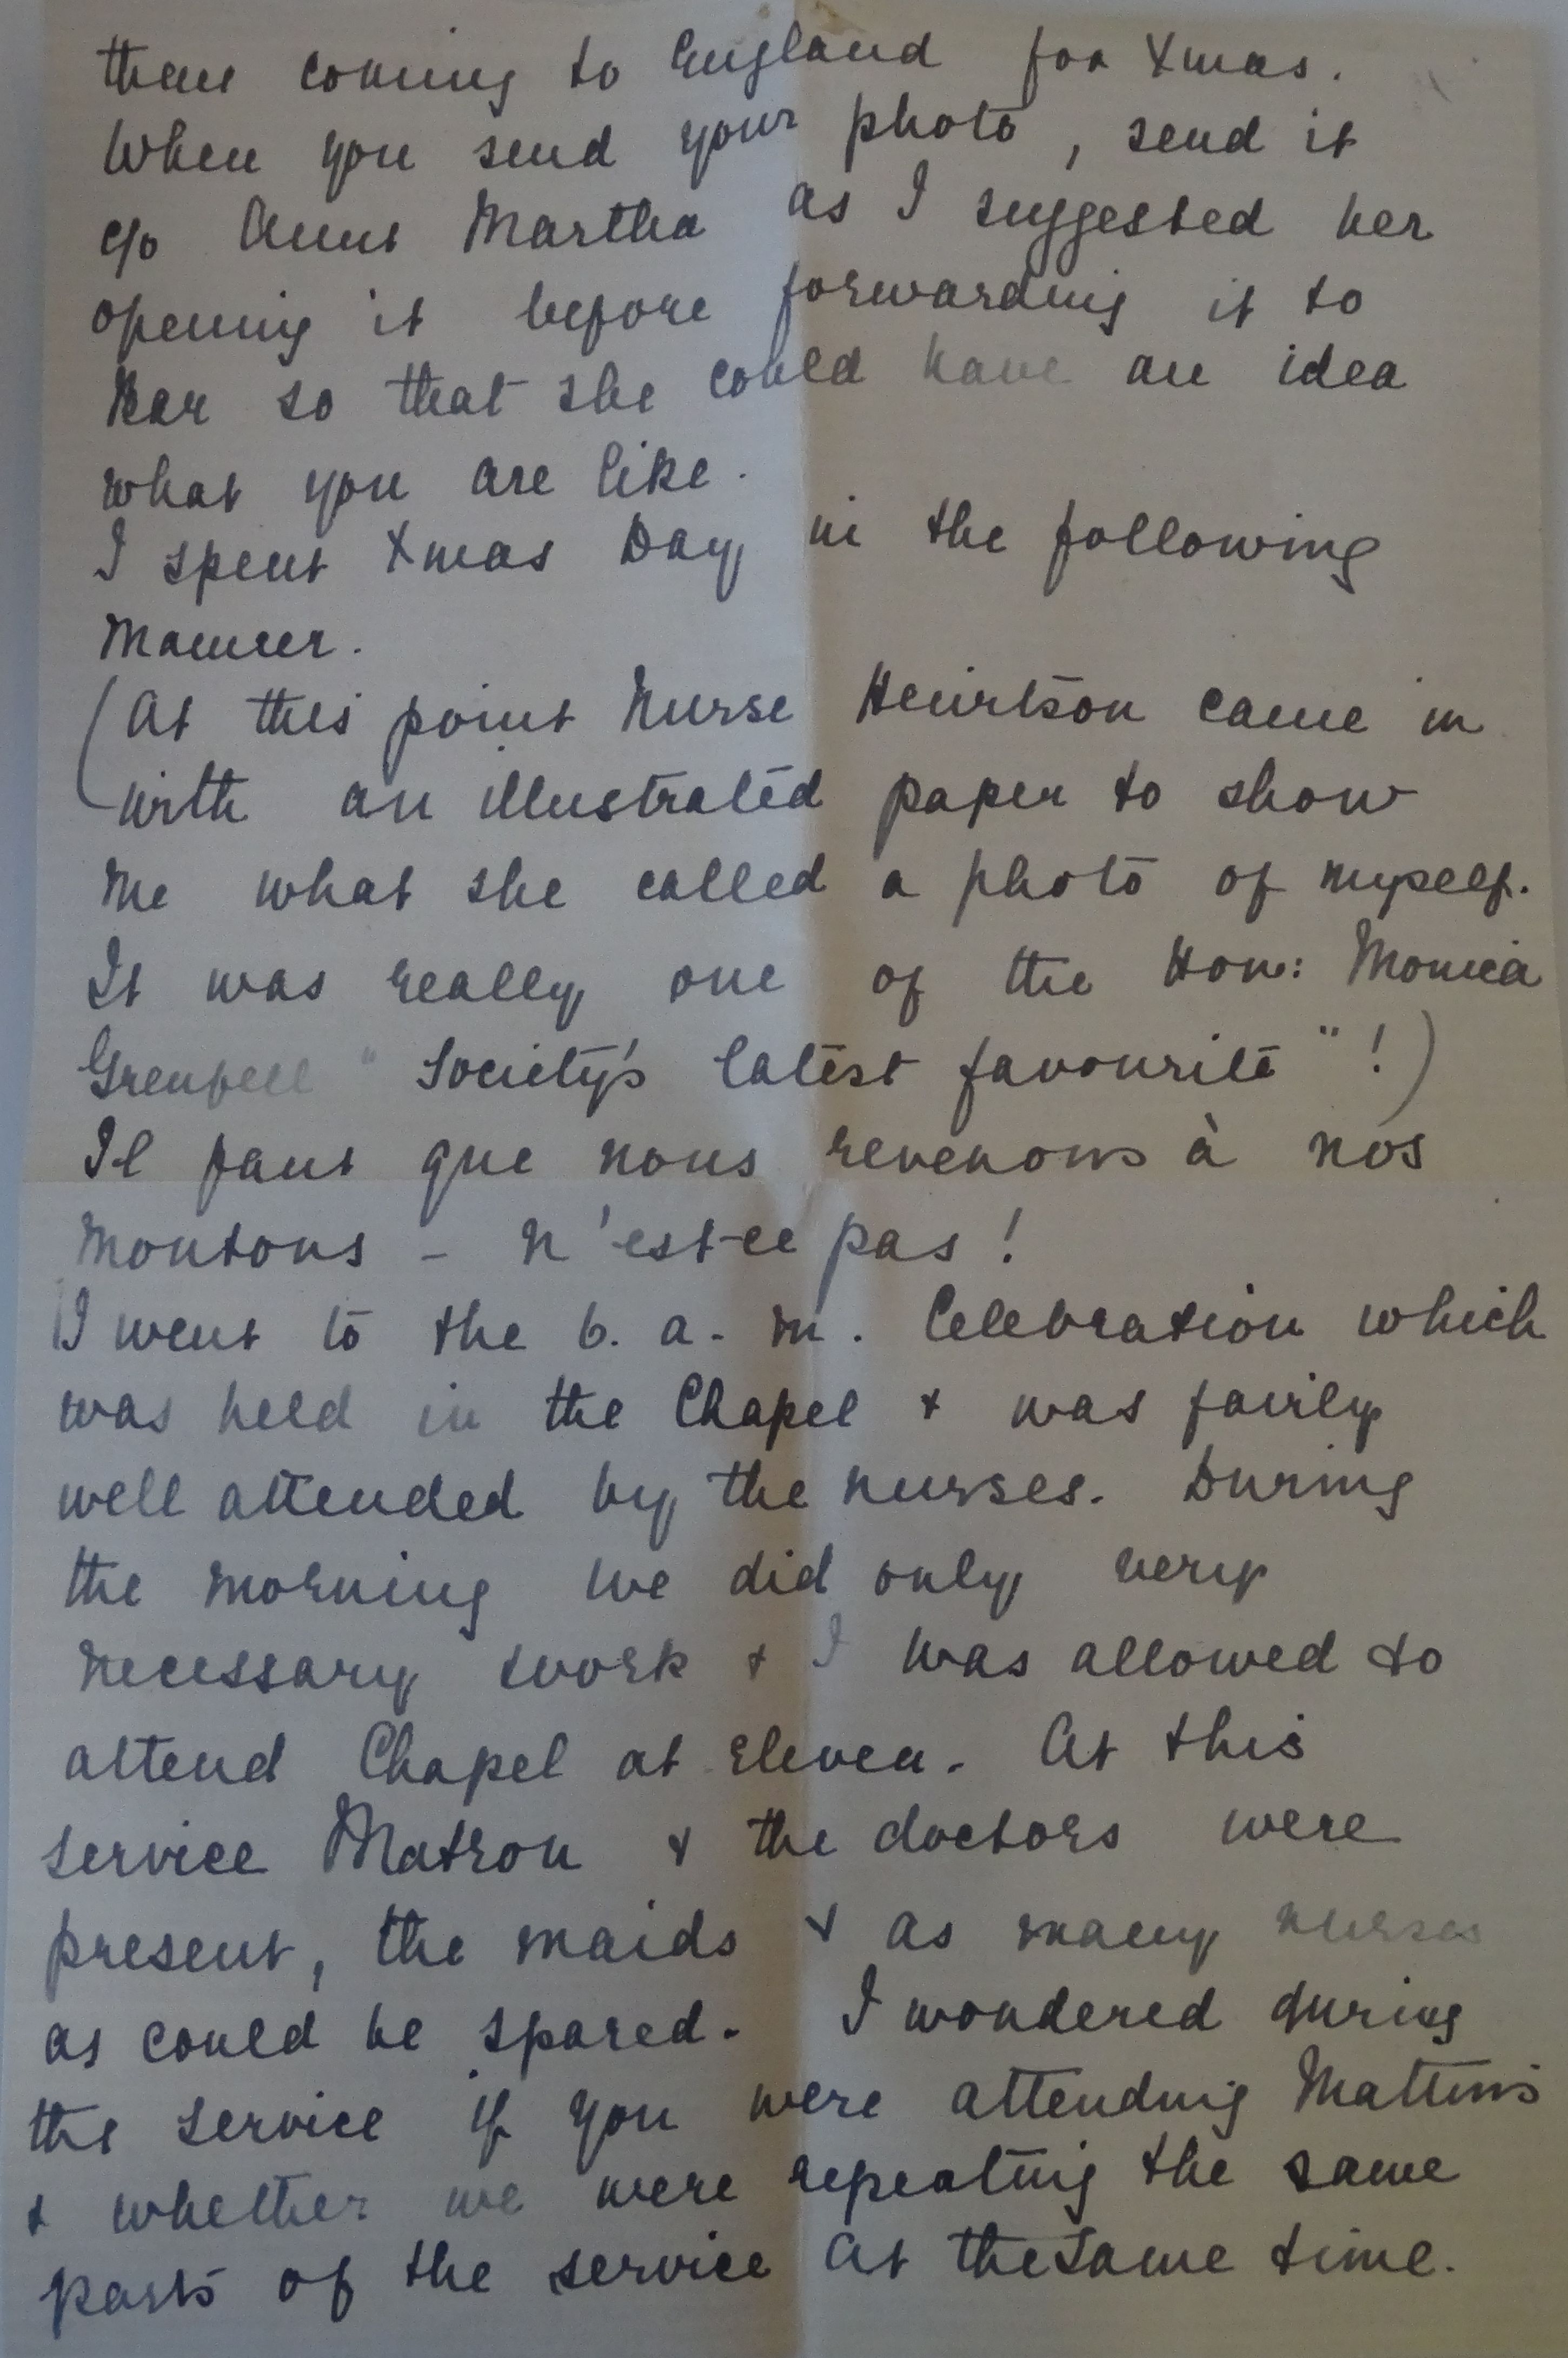 them coming to England for Xmas.
When you send your photo, send it
c/o Aunt Martha as I suggested her
opening it before forwarding it to
Bar so that she could have an idea
what you are like.
I spent Xmas Day in the following
manner.
(At this point Nurse came in
with an illustrated paper to show
me what she called a photo of myself.
It was really one of the Hon: Monica
Grenfell "Society's latest favourite"!)
Il faut que nous revenons à nos
moutons - n'est-ce pas!
I went to the 6. a. m. Celebration which
was held in the Chapel & was fairly
well attended by the nurses. During
the morning we did only very
necessary work & I was allowed to
attend Chapel at eleven. At this
service Matron & the doctors were
present, the maids & as many nurses
as could be spared. I wondered during
the service if you were attending Mattins
& whether we were repeating the same
parts of the service at the same time.